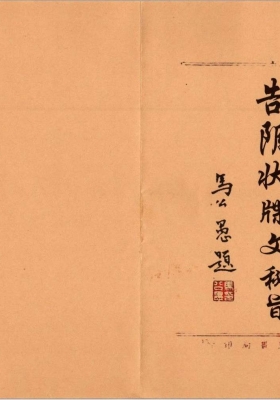 告阴状牒文秘旨
馬公愚題